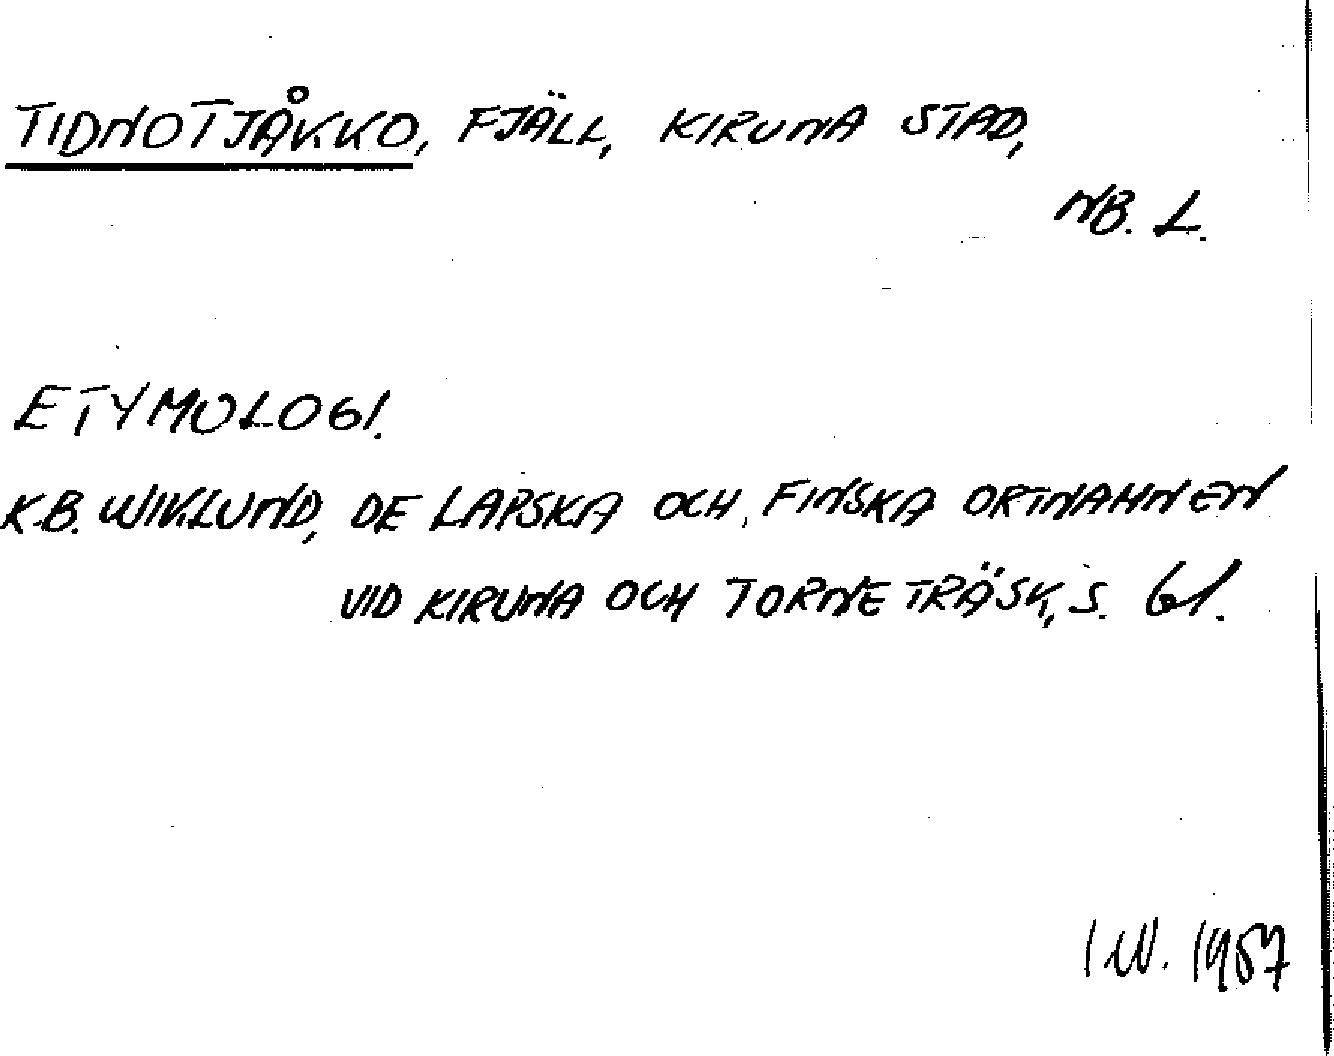 TIDNOTJÅKKO, FJÄLL, KIRUNA STAD,
NB. L.
ETYMOLOGI.
K.B. WIKLUND, DE LAPSKA OCH FINSKA ORTNAMNEN
VID KIRUNA OCH TORNETRÄSK, S. 61.
I.W. 1967